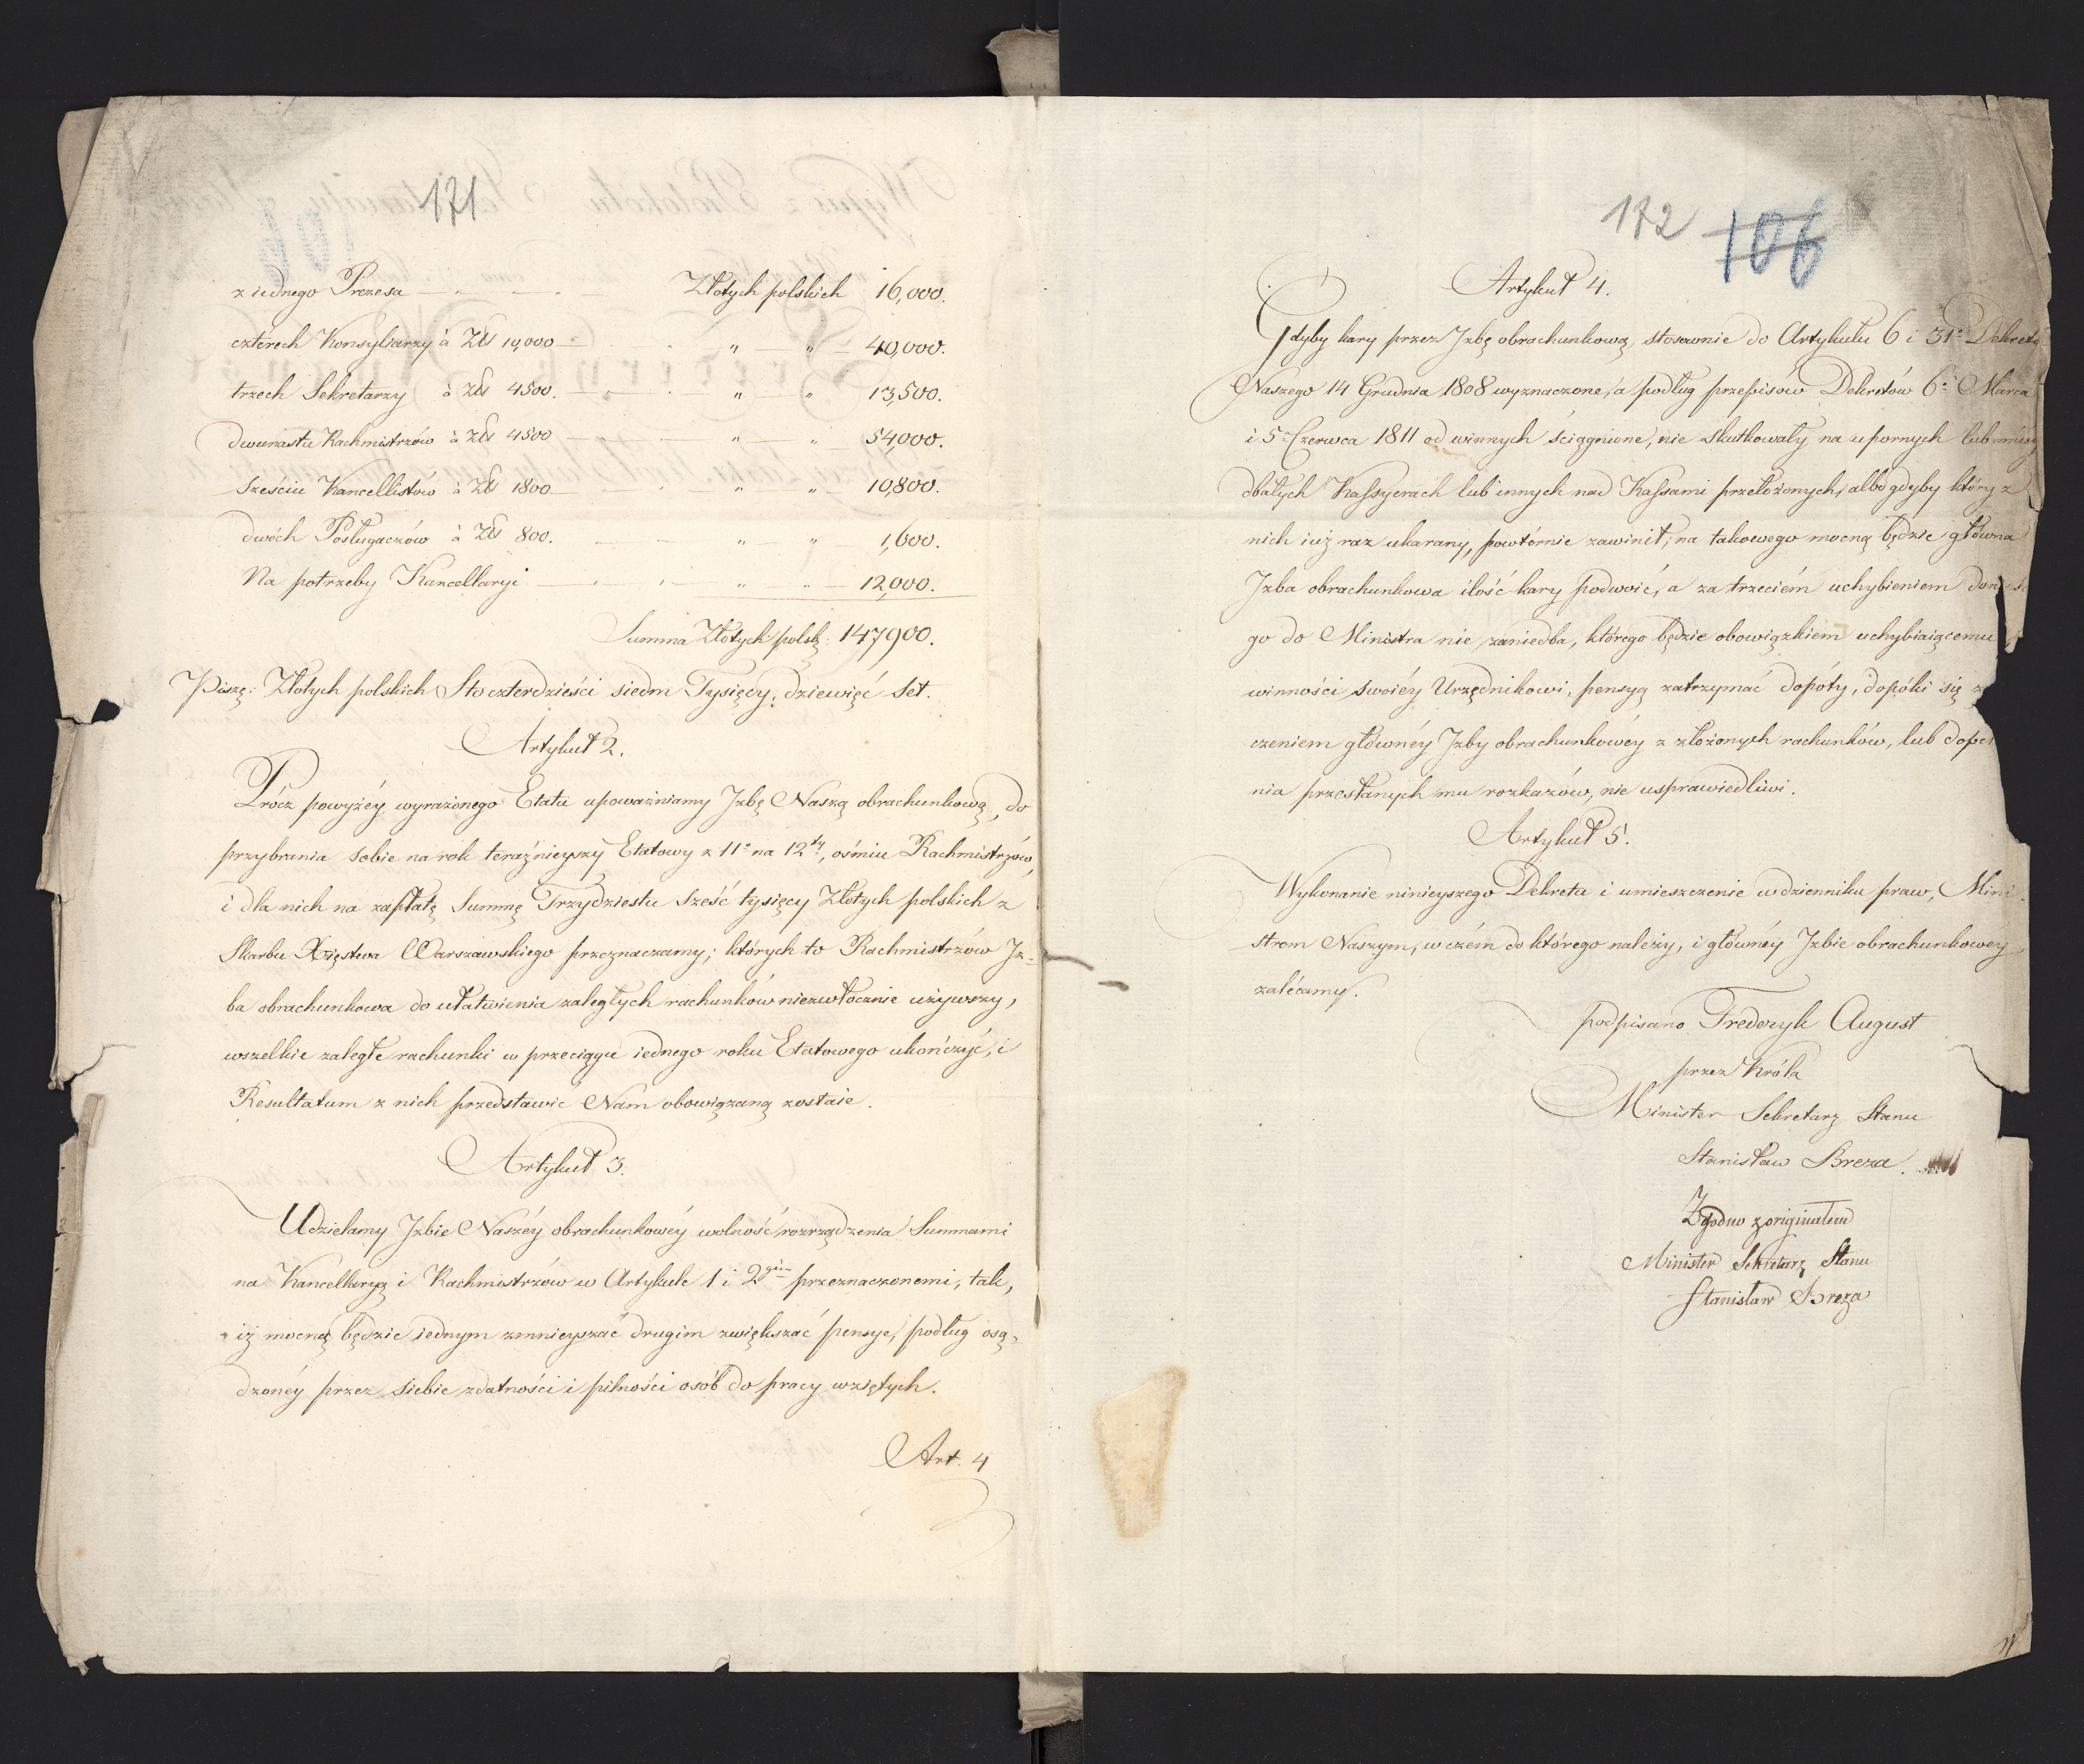 171
z iednego Prezesa — " — . — Złotych polskich 16,000.
czterech Konsyliarzy à Złł 10,000 — . — " " — 40,000.
trzech Sekretarzy à Złł 4500. — . — " — " 13,500.
dwunastu Rachmistrzów à Złł 4500 — . — " — " 54,000.
Sześciu Kancellistów à Złł 1800 — . — " — " — 10,800.
dwóch Posługaczów à Złł 800. — — " — " 1,600.
Na potrzeby Kancellaryi — . — " " — 12,000.
Summa Złotych polsk: 147900.
Piszę: Złotych polskich Sto czterdzieści siedm Tysięcy, dziewięć set.
Artykuł 2.
Prócz powyżéy wyrażonego Etatu upoważniamy Izbę Naszą obrachunkową, do
przybrania sobie na rok teraźnieyszy Etatowy z 11° na 12ty, ośmiu Rachmistrzów,
i dla nich na zapłatę Summę Trzydziestu Sześć tysięcy Złotych polskich z
Skarbu Xięstwa Warszawskiego przeznaczamy; których to Rachmistrzów Iz-
ba obrachunkowa do ułatwienia zaległych rachunków niezwłocznie użÿwszy,
wszelkie zaległe rachunki w przeciągu iednego roku Etatowego ukończyć, i
Resultatum z nich przedstawić Nam obowiązaną zostaie.
Artykuł 3.
Udzielamy Izbie Naszéy obrachunkowéy wolność rozrządzenia Summami
na Kancellaryą i Rachmistrzów w Artykule 1 i 2gim przeznaczonemi, tak,
iż mocną będzie iednym zmnieyszać drugim zwiększać pensye, podług osą-
dzonéy przez siebie zdatności i pilności osób do pracy wziętych.
Art. 4
172 106
Artykuł 4.
Gdyby kary przez Izbę obrachunkową, stosownie do Artykułu 6 i 31° Dekretu
Naszego 14 Grudnia 1808 wyznaczone, a podług przepisów Dekretów 6° Marca
i 5° Czerwca 1811 od winnych ściągnione, nie skutkowały na upornych lub
dbałych Kassyerach lub innych nad Kassami przełożonych, albo gdyby który z
nich iuż raz ukarany, powtórnie zawinił, na takowego mocną będzie główna
Izba obrachunkowa ilość kary podwoić, a za trzeciém uchybieniem
go do Ministra nie zaniedba, którego będzie obowiązkiem uchybiaiącemu
winności swoiéy Urzędnikowi, pensyą zatrzymać dopóty, dopóki się z
czeniem głównéy Izby obrachunkowéy z złożonych rachunków, lub dopeł
nia przesłanych mu rozkazów, nie usprawiedliwi.
Artykuł 5.
Wykonanie ninieyszego Dekretu i umieszczenie w dzienniku praw, Mini
strom Naszym, w czém do którego należy, i głównéy Izbie obrachunkowey
zalécamy.
podpisano Fryderyk August
przez Króla
Minister Sekretarz Stanu
Stanisław Breza.
Zgodno z originałem
Minister Sekretarz Stanu
Stanisław Breza